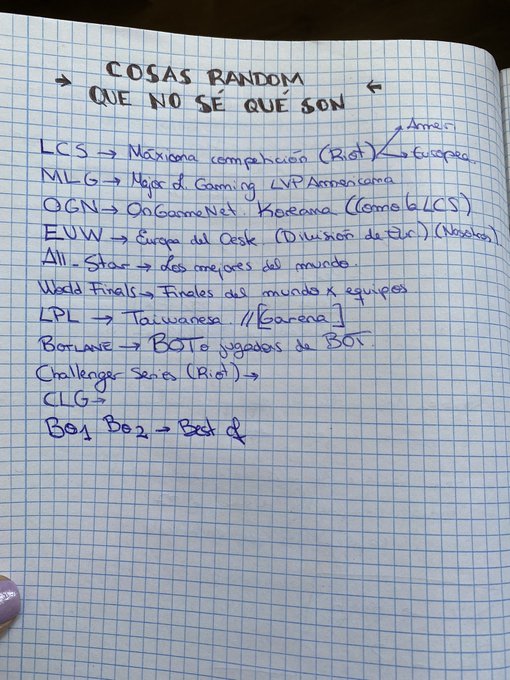 → COSAS RANDOM ←
QUE NO SÉ QUÉ SON
LCS → Máxima competición (Riot) → Ameri
→ Europea.
MLG → Major of Gaming LVP Americana
OGN → OnGameNet. Koreana (Como la LCS)
EUW → Europa del Oeste (División de Eur) (Nosotros)
All-Star → Los mejores del mundo
World Finals → Finales del mundo x equipos
LPL → Taiwanesa. // [Garena]
BOTLANE → BOT o jugadores de BOT.
Challenger Series (Riot) →
CLG →
BO1 BO2 → Best of